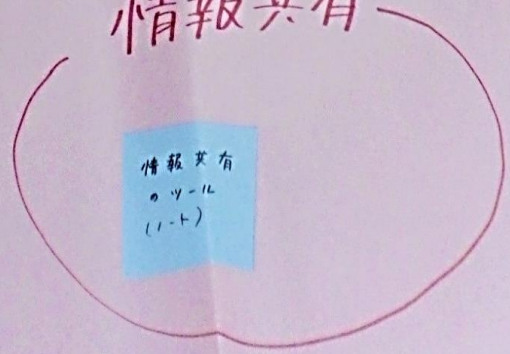 情報共有
情報共有
のツール
(ノート)